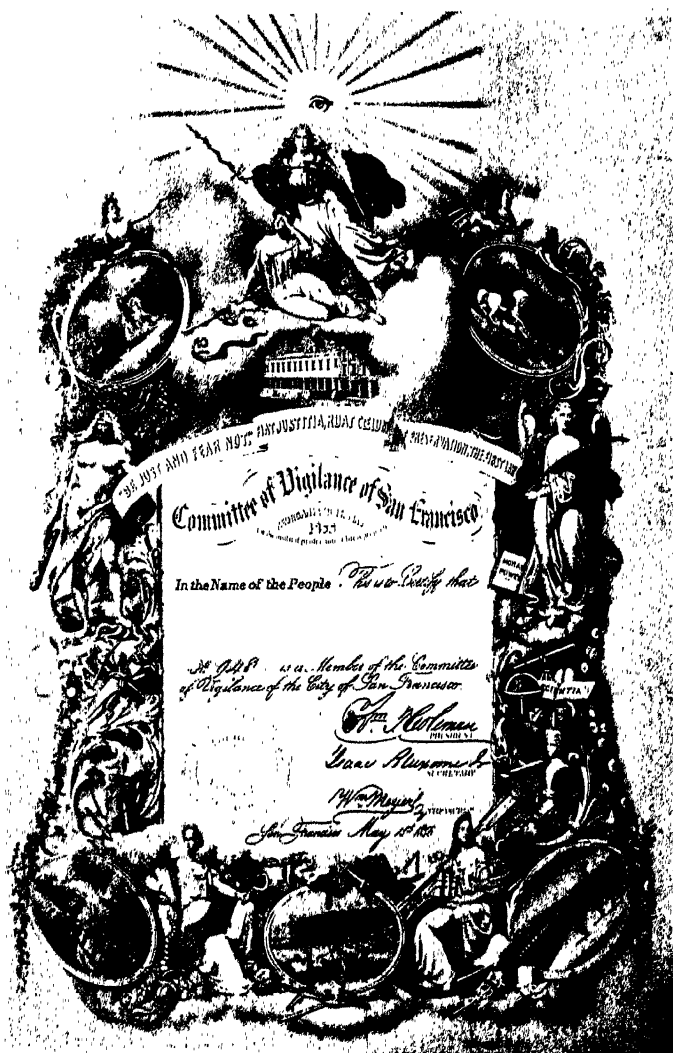 "BE JUST AND FEAR NOT" FIAT JUSTITIA, RUAT CŒLUM PRESERVATION, THE FIRST LAW
Committee of Vigilance of San Francisco
In the Name of the People This is to Certify that
No. 948 is a Member of the Committee
of Vigilance of the City of San Francisco
Wm T Coleman
PRESIDENT
Isaac Bluxome Jr
SECRETARY
MORAL POWER
Wm Meyer
TREASURER
San Francisco May 15th 1856